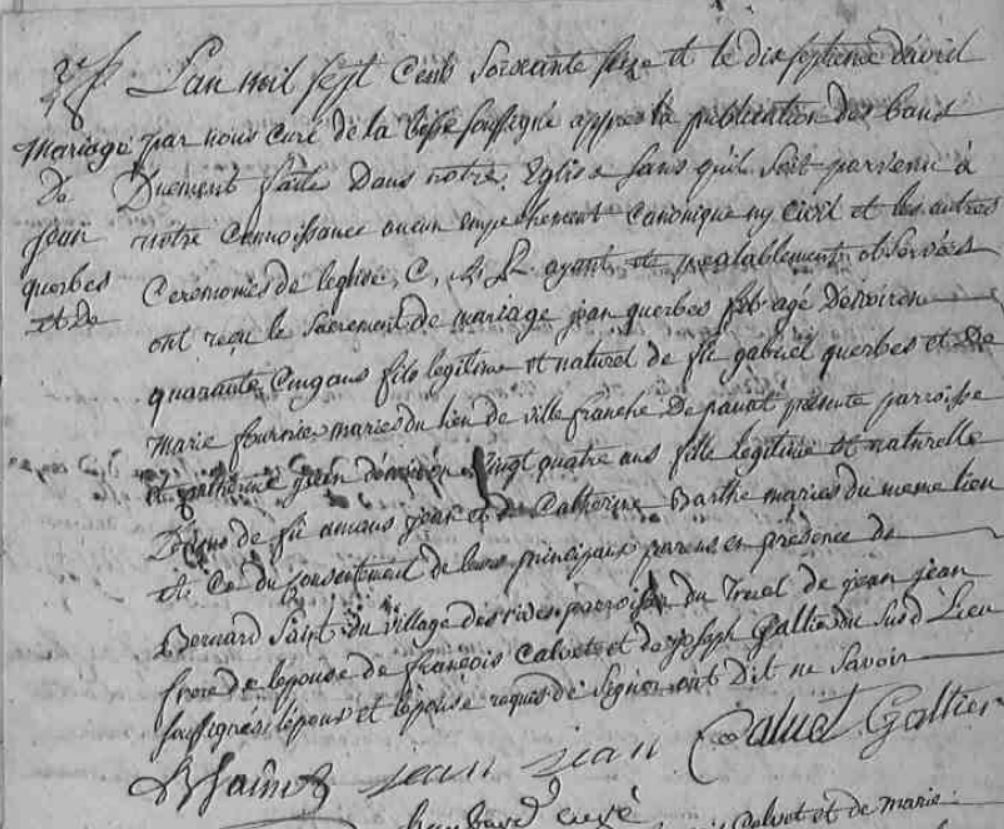 L'an mil sept cens soixante seize et le dix septieme davril
Mariage par nous curé de la besse soussigné appres la publication des bans
De Duement faite Dans notre Eglise sans quil soit parvenu à
jean notre connoissance aucun empechement canonique ny civil et les autres
querbes Ceremonies de leglise, C, A, R ayant été prealablement observées
et de ont reçu le sacrement de mariage jean querbes agé Denviron
quarante cinq ans fils legitime et naturel de feu gabriel querbes et De
marie fournier mariés du lieu de ville franche De panat presente parroisse
et catherine jean denviron vingt quatre ans fille legitime et naturelle
de feu amans jean et de Catherine Barthe mariés du meme lieu
et ce du consentement de leurs principaux parens en présence de
Bernard Saint du village parroisse du Truel de jean jean
frere de lepouse de françois Calvet et de joseph Galtier du susd Lieu
soussignés lépoux et lépouse requis de signer ont Dit ne savoir
BSaint jean jean Calvet Galtier
curé
Calvet et de marie